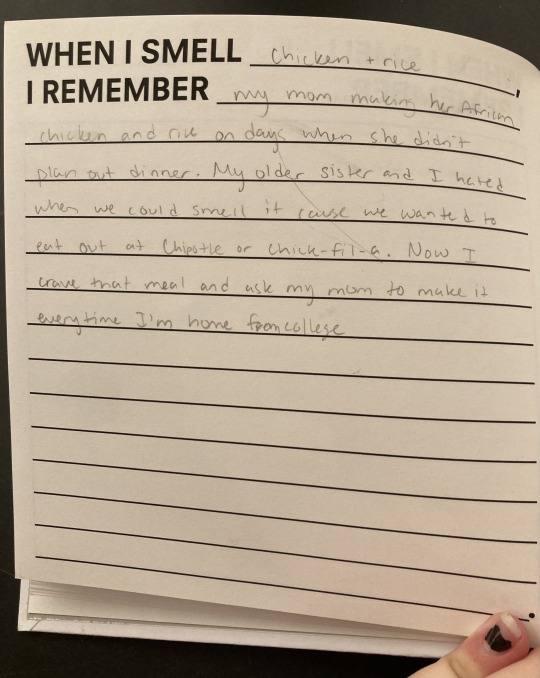 WHEN I SMELL chicken + rice,
I REMEMBER my mom making her African
chicken and rice on days when she didn't
plan out dinner. My older sister and I hated
when we could smell it cause we wanted to
eat out at Chipotle or chick-fil-a. Now I
crave that meal and ask my mom to make it
everytime I'm home from college
.